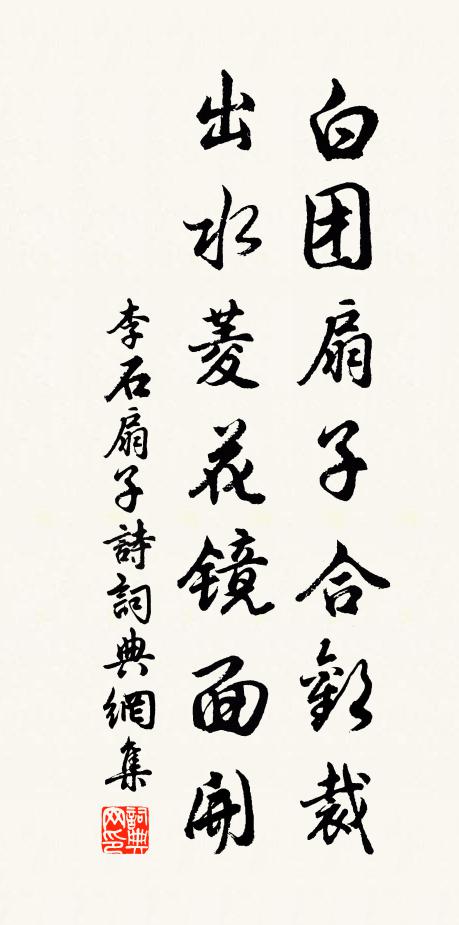 白团扇子合歡裁
出水菱花镜面開
李石扇子詩詞典網集
詞典网印